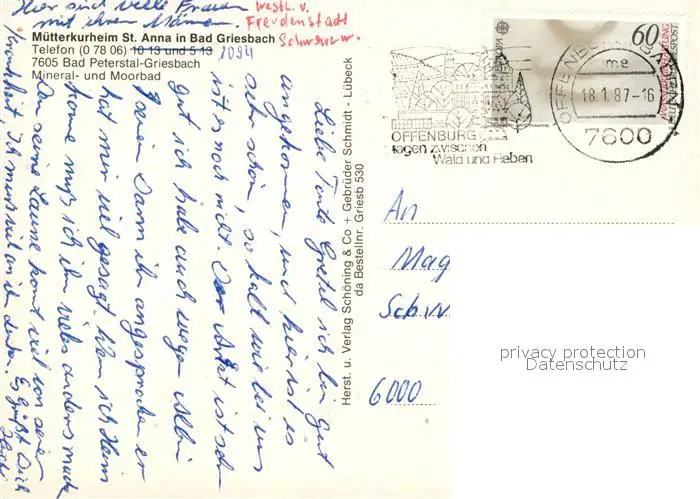 Hier sind viele Frauen
mit ihren Männern.
westl. v.
Freudenstadt
Schwarzw.
Mütterkurheim St. Anna in Bad Griesbach
Telefon (0 78 06) 10 13 und 5 13 1094
7605 Bad Peterstal-Griesbach
Mineral- und Moorbad
Liebe Tante Gretel ich bin gut
angekommen, und hier ist es
sehr schön, so kalt wie bei uns
ist es noch nicht. Der Arzt ist sehr
gut ich habe auch wegen Albin
seinen Darm ihn angesprochen er
hat mir viel gesagt. Wenn ich Heim
komme muß ich ihm vieles anders mach
Denn seine Laune komt viel von seiner
Krankheit. Ich muß viel an ihn denken. Es grüßt Dich
Herst. u. Verlag Schöning & Co + Gebrüder Schmidt - Lübeck
da Bestellnr. Griesb 530
OFFENBURG
tagen zwischen
Wald und Reben
EUROPA
60
OFFENBURG
me
18.1.87-16
7600
An
Mag
Schw
6000
privacy protection
Datenschutz